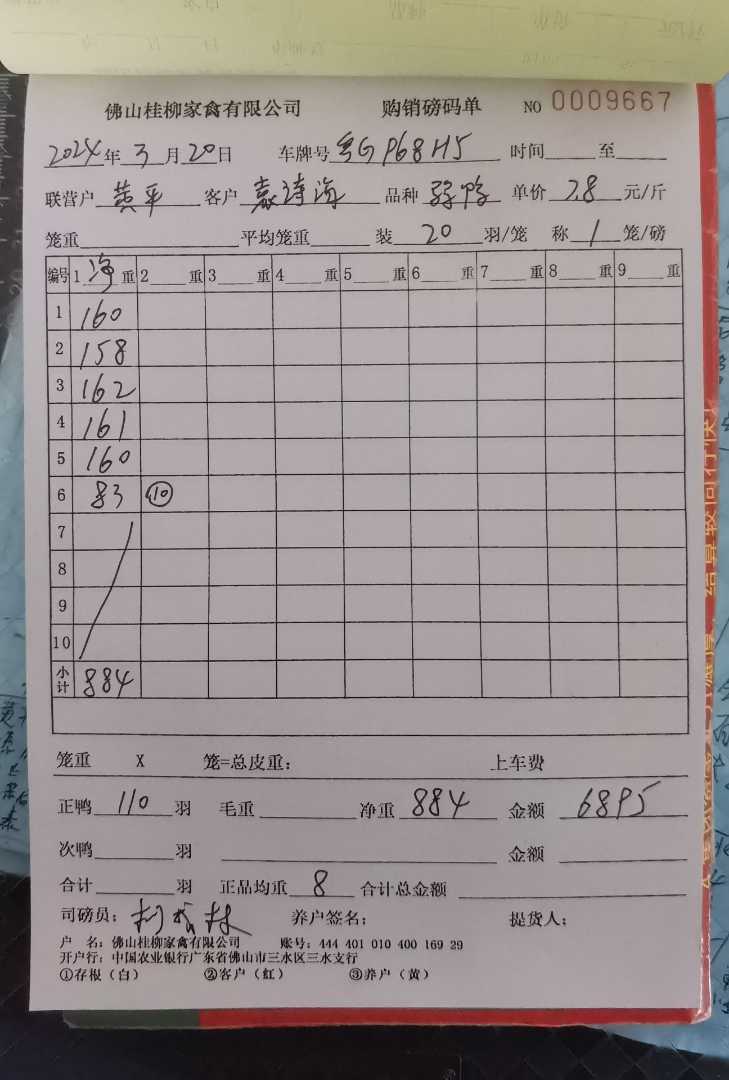 佛山桂柳家禽有限公司 购销磅码单 NO 0009667
2024年3月20日 车牌号 粤GP68H5 时间 至
联营户 黄平 客户 袁诗海 品种 单价 7.8 元/斤
笼重 平均笼重 装 20 羽/笼 称 1 笼/磅
编号 1 净 重 2 重 3 重 4 重 5 重 6 重 7 重 8 重 9 重
1 160
2 158
3 162
4 161
5 160
6 83 10
7
8
9
10
小计 884
笼重 X 笼=总皮重: 上车费
正鸭 110 羽 毛重 净重 884 金额 6895
次鸭 羽 金额
合计 羽 正品均重 8 合计总金额
司磅员: 养户签名: 提货人:
户 名: 佛山桂柳家禽有限公司 账号: 444 401 010 400 169 29
开户行: 中国农业银行广东省佛山市三水区三水支行
①存根(白) ②客户(红) ③养户(黄)